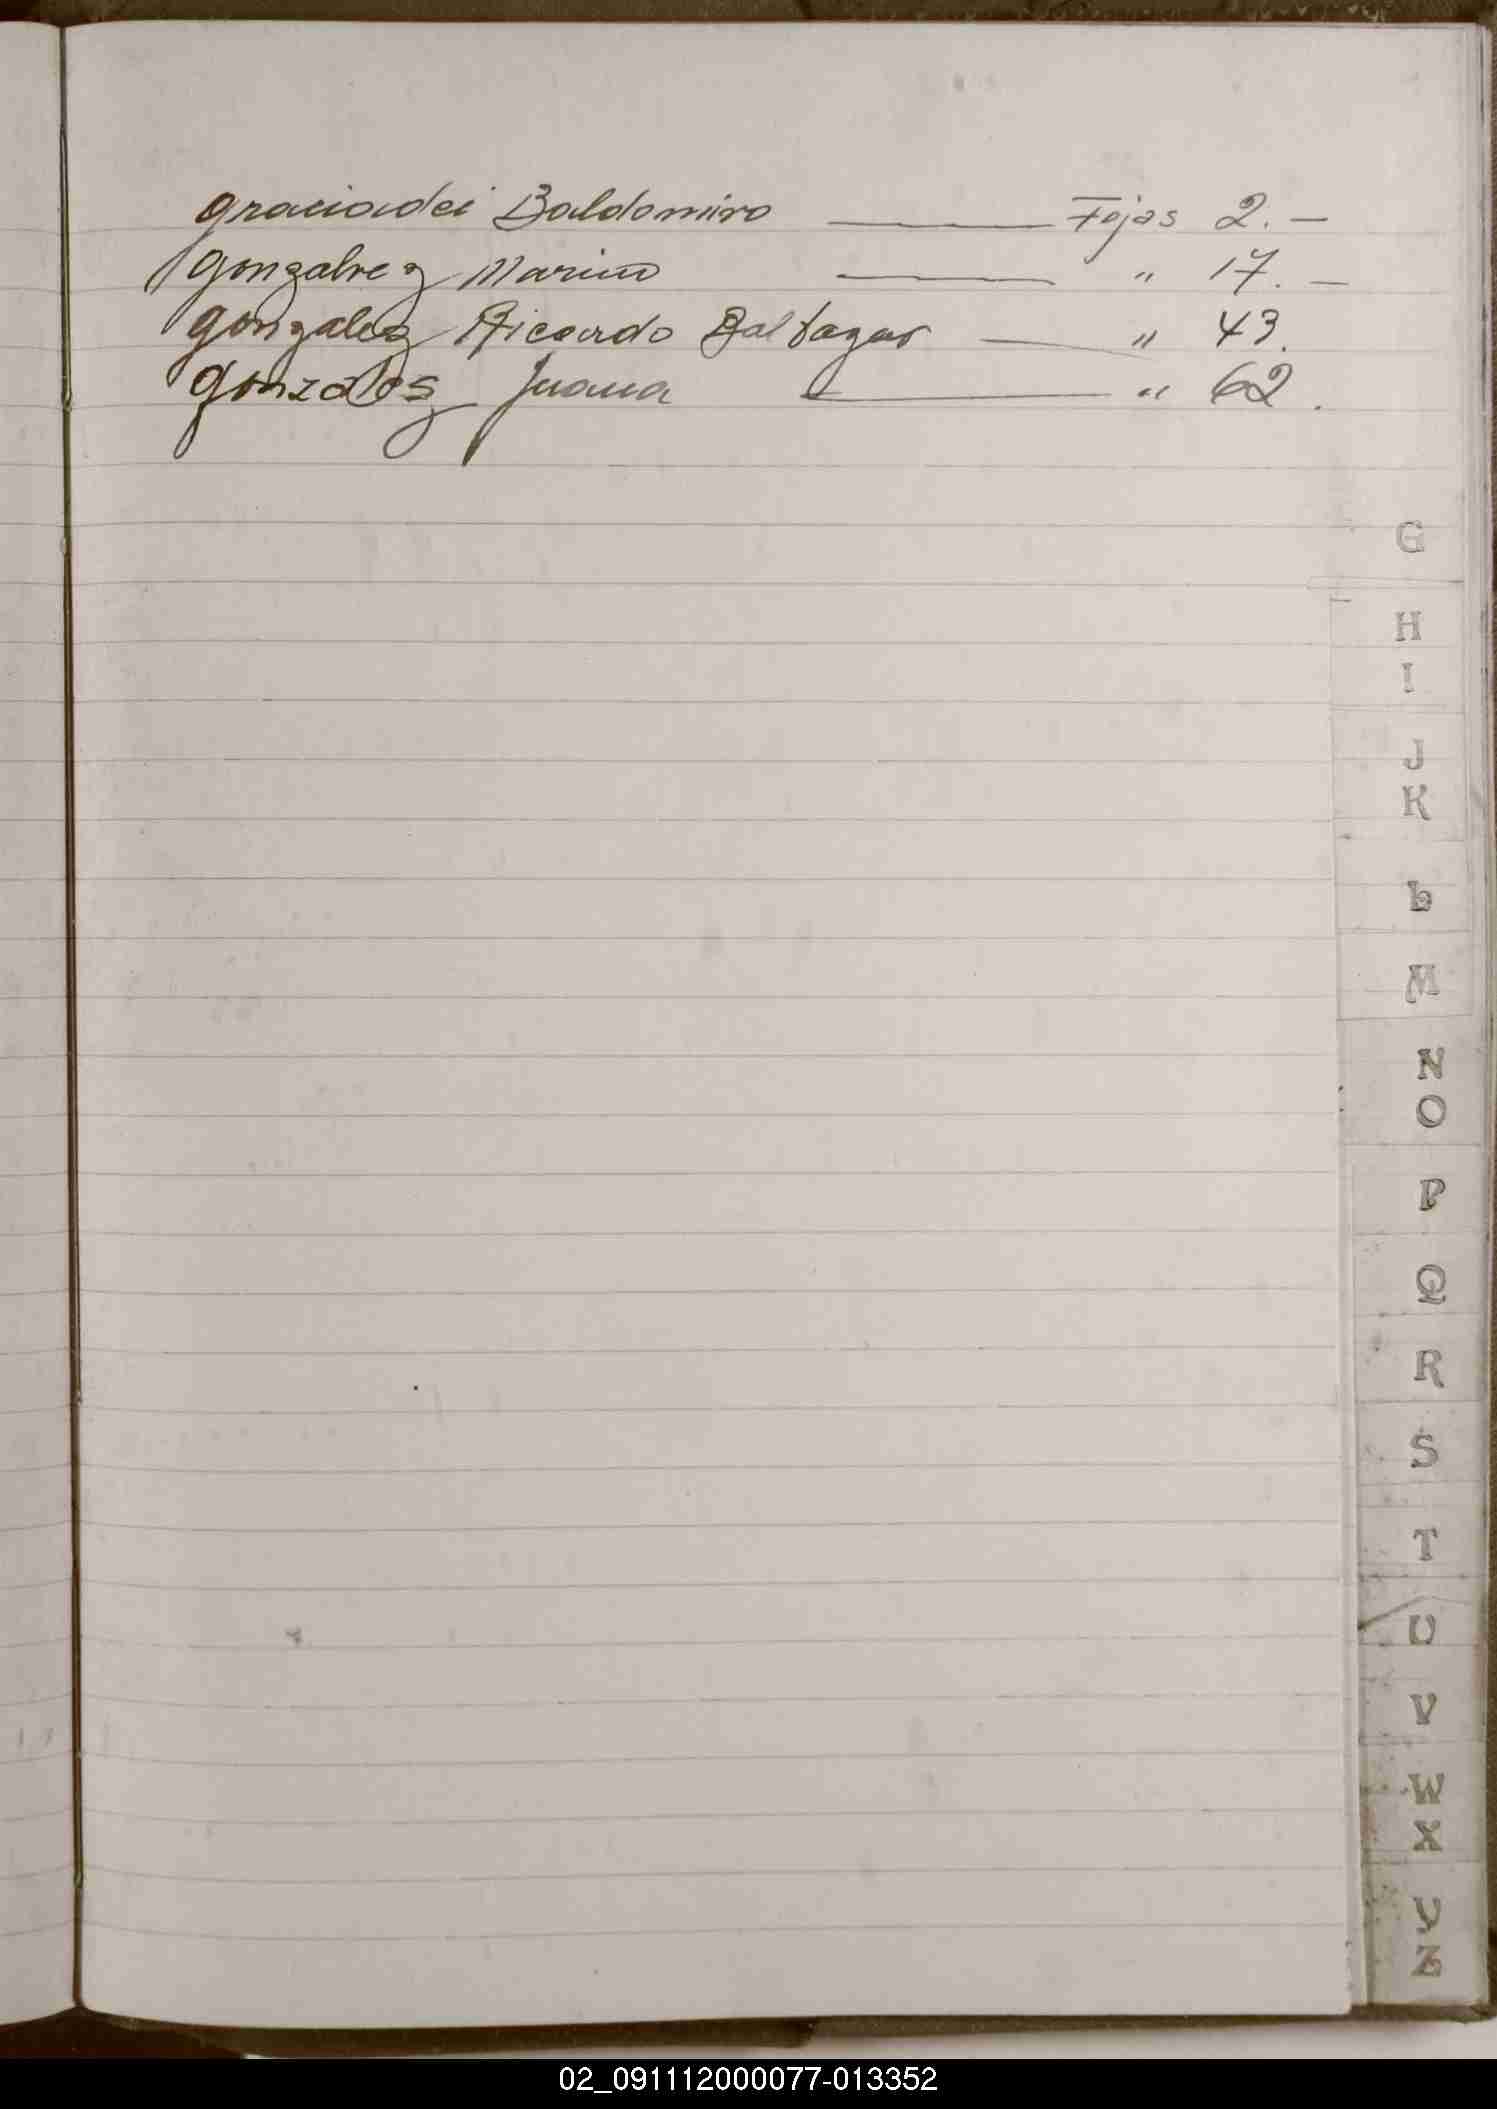 Graciadei Baldomiro ——— Fojas 2. —
Gonzalvez Marino ——— " 17. —
Gonzalez Ricardo Baltazar —— " 43.
Gonzales Juana ——— " 62.
G
H
I
J
K
L
M
N
O
P
Q
R
S
T
U
V
W
X
Y
Z
02_091112000077-013352